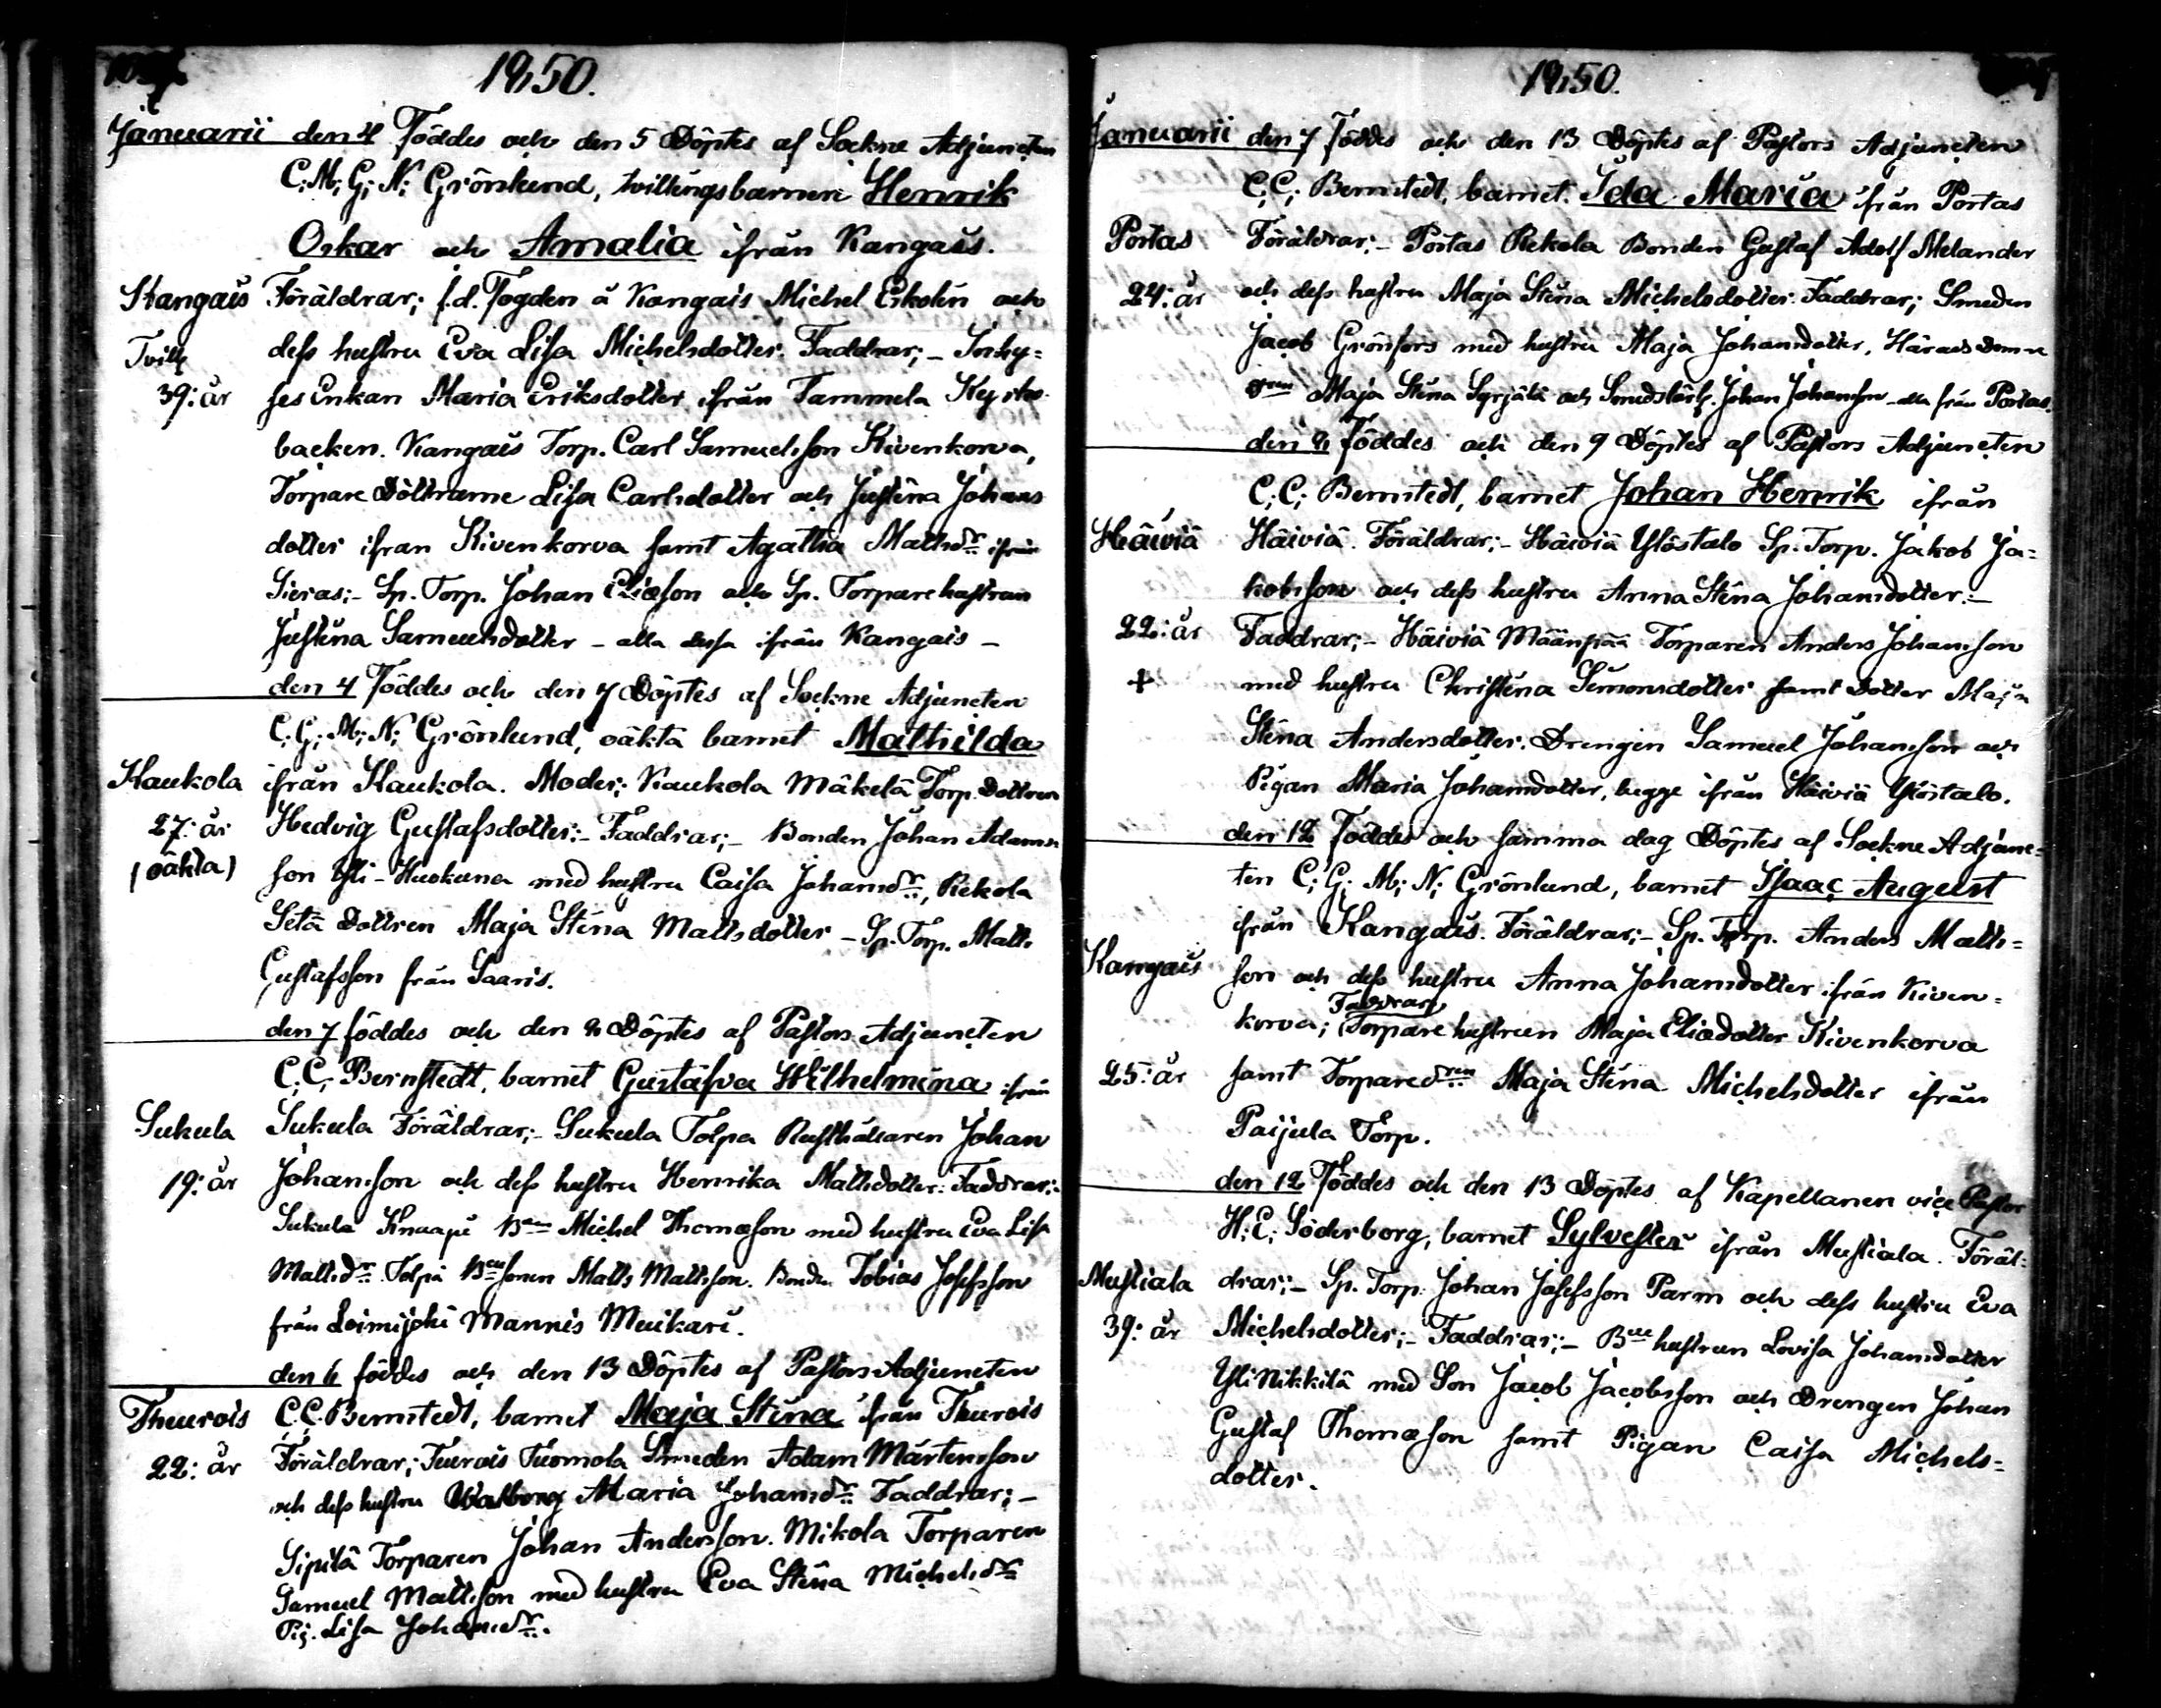 1850.
Januarii den 4 Föddes och den 5 Döptes af Sockne Adjuncten
C: M; G; N: Grönlund, tvillingsbarnen Henrik
Oskar och Amalia ifrån Kangais.
Kangais Föräldrar; f.d. Fogden å Kangais Michel Eskolin och
Tvill dess hustru Eva Lisa Michelsdotter. Faddrar; – Inhy=
39: år ses Enkan Maria Eriksdotter ifrån Tammela Kyrko
backen. Kangais Torp. Carl Samuelsson Kivenkorva,
Torpare Döttrarne Lisa Carlsdotter och Justina Johans
dotter ifran Kivenkorva samt Agatha Mattsdr ifrån
Sieras: – Sp. Torp. Johan Eliasson och Sp. Torpare hustrun
Justina Samuelsdotter – alla dessa ifrån Kangais –
den 4 Föddes och den 7 Döptes af Sockne Adjuncten
C; G; M; N; Grönlund, oäkta barnet Mathilda
Kaukola ifrån Kaukola. Moder; Kaukola Mäkelä Torp. Dottren
27: år Hedvig Gustafsdotter: – Faddrar; – Bonden Johan Adams
(oäkta) son Yli-Huokuna med hustru Caisa Johansdr, Rekola
Setä Dottren Maja Stina Mattsdotter – Sp. Torp. Matts
Gustafsson från Saaris.
den 7 föddes och den 8 Döptes af Pastors Adjuncten
C. C, Bernstedt, barnet Gustafva Wilhelmina ifrån
Sukula Sukula Föräldrar; – Sukula Tolpa Rusthållaren Johan
19: år Johansson och dess hustru Henrika Mattsdotter: Faddrar: –
Sukula Knaapi Ben Michel Thomasson med hustru Eva Lisa
Mattsdr Tolpa Besonen Matts Mattsson. Bonden Tobias Josefsson
från Loimijoki Mannis Muikari.
den 6 föddes och den 13 Döptes af Pastors Adjuncten
Theurois C. C. Bernstedt, barnet Maja Stina ifrån Theurois
22: år Föräldrar; Teurois Tuomola Smeden Adam Mårtensson
och dess hustru Walborg Maria Johansdr Faddrar; –
Sipilä Torparen Johan Andersson. Mikola Torparen
Samuel Mattsson med hustru Eva Stina Michelsdr
Pig. Lisa Johansdr.
1850.
Januarii den 7 Föddes och den 13 Döptes af Pastors Adjuncten
C, C; Bernstedt, barnet Ida Maria ifrån Portas
Portas Föräldrar; – Portas Rekola Bonden Gustaf Adolf Melander
24: år och dess hustru Maja Stina Michelsdotter. Faddrar; Smeden
Jacob Grönfors med hustru Maja Johansdotter, Härads Domare
dren Maja Stina Syrjälä och Smedslärl. Johan Johansson – alla från Portas.
den 8 Föddes och den 9 Döptes af Pastors Adjuncten
C; C; Bernstedt, barnet Johan Henrik ifrån
Häiviä Häiviä. Föräldrar; – Häiviä Ylöstalo Sp. Torp. Jakob Ja=
kobsson och dess hustru Anna Stina Johansdotter. –
22: år Faddrar; – Häiviä Määnpää Torparen Anders Johansson
+ med hustru Christina Simonsdotter samt Dotter Maja
Stina Andersdotter. Drengen Samuel Johansson och
Pigan Maria Johansdotter, begge ifrån Häiviä Ylöstalo.
den 12 Föddes och samma dag Döptes af Sockne Adjunc=
ten C; G; M; N; Grönlund, barnet Isaac August
ifrån Kangais. Föräldrar; – Sp. Torp. Anders Matts=
Kangais son och dess hustru Anna Johansdotter ifrån Kiven=
Faddrar;
korva; Torpare hustrun Maja Eliadotter Kivenkorva
25: år samt Torparedren Maja Stina Michelsdotter ifrån
Paijula Torp.
den 12 Föddes och den 13 Döptes af Kapellanen vice Pastor
H: E; Söderborg, barnet Sylvester ifrån Mustiala. Föräl=
Mustiala drar; – Sp. Torp. Johan Josefsson Parm och dess hustru Eva
39: år Michelsdotter; – Faddrar; – Bde hustrun Lovisa Johansdotter
Yli Nikkilä med Son Jacob Jacobsson och Drengen Johan
Gustaf Thomasson samt Pigan Caisa Michels=
dotter.